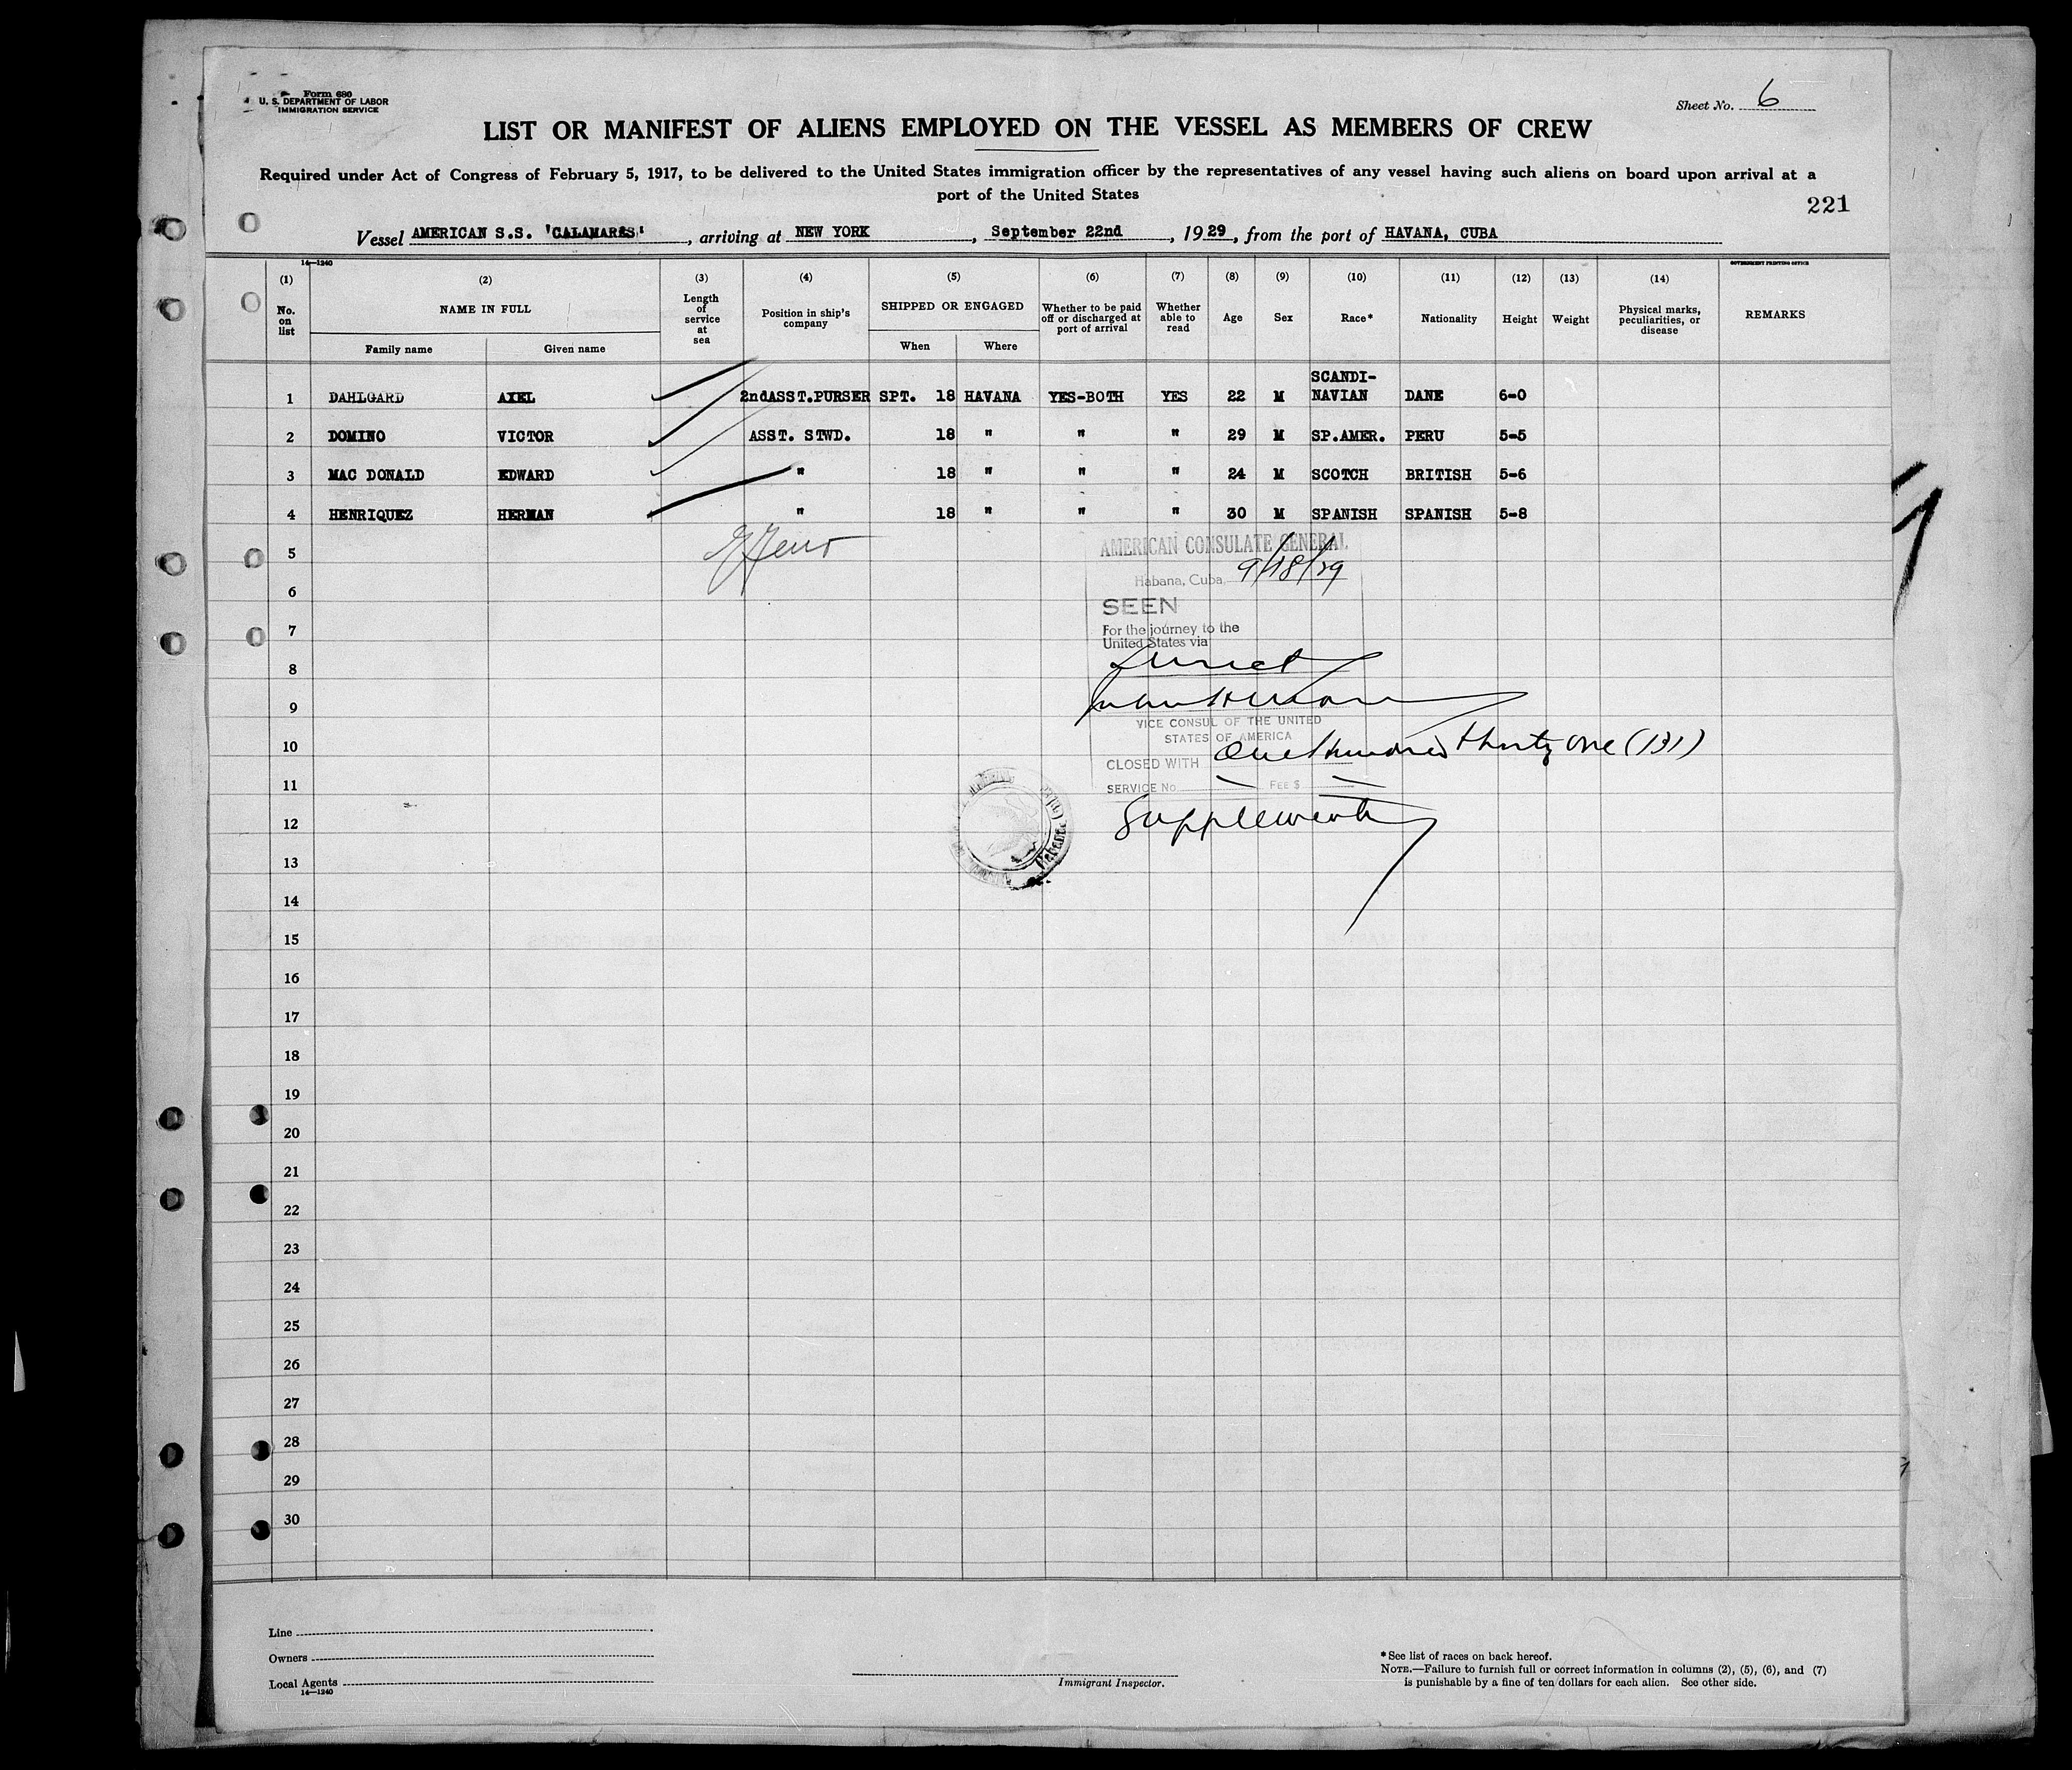 Form 680
U. S. DEPARTMENT OF LABOR
IMMIGRATION SERVICE
Sheet No. 6
LIST OR MANIFEST OF ALIENS EMPLOYED ON THE VESSEL AS MEMBERS OF CREW
Required under Act of Congress of February 5, 1917, to be delivered to the United States immigration officer by the representatives of any vessel having such aliens on board upon arrival at a
port of the United States
221
Vessel AMERICAN S.S. 'CALAMARES' , arriving at NEW YORK , September 22nd , 1929, from the port of HAVANA, CUBA
14—1240
GOVERNMENT PRINTING OFFICE
(1) (2) (3) (4) (5) (6) (7) (8) (9) (10) (11) (12) (13) (14)
No. on list NAME IN FULL Length of service at sea Position in ship's company SHIPPED OR ENGAGED Whether to be paid off or discharged at port of arrival Whether able to read Age Sex Race* Nationality Height Weight Physical marks, peculiarities, or disease REMARKS
Family name Given name When Where
1 DAHLGARD AXEL 2ndASST.PURSER SPT. 18 HAVANA YES-BOTH YES 22 M SCANDI-NAVIAN DANE 6-0
2 DOMINO VICTOR ASST. STWD. 18 " " " 29 M SP.AMER. PERU 5-5
3 MAC DONALD EDWARD " 18 " " " 24 M SCOTCH BRITISH 5-6
4 HENRIQUEZ HERMAN " 18 " " " 30 M SPANISH SPANISH 5-8
5
6
7
8
9
10
11
12
13
14
15
16
17
18
19
20
21
22
23
24
25
26
27
28
29
30
AMERICAN CONSULATE GENERAL
Habana, Cuba, 9/18/29
SEEN
For the journey to the
United States via
Direct
VICE CONSUL OF THE UNITED
STATES OF AMERICA
CLOSED WITH One Hundred thirty one (131)
SERVICE No. — FEE $ —
Supplement
Line
Owners
Local Agents
14—1240
Immigrant Inspector.
*See list of races on back hereof.
NOTE.—Failure to furnish full or correct information in columns (2), (5), (6), and (7)
is punishable by a fine of ten dollars for each alien. See other side.